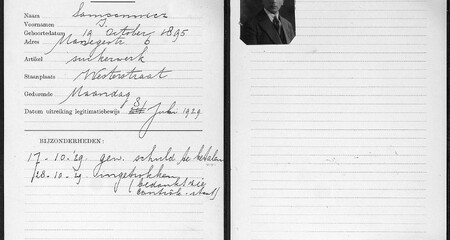 Naam Sampanwicz
Voornamen J.
Geboortedatum 19 October 1895
Adres Manegestr. 6
Artikel suikerwerk
Staanplaats Westerstraat
Gedurende Maandag
Datum uitreiking legitimatiebewijs 31 Juli 1929
BIJZONDERHEDEN:
17-10-29. gew. schuld te betalen
28-10-29 ingetrokken
(bedankt zie
controle-staat)